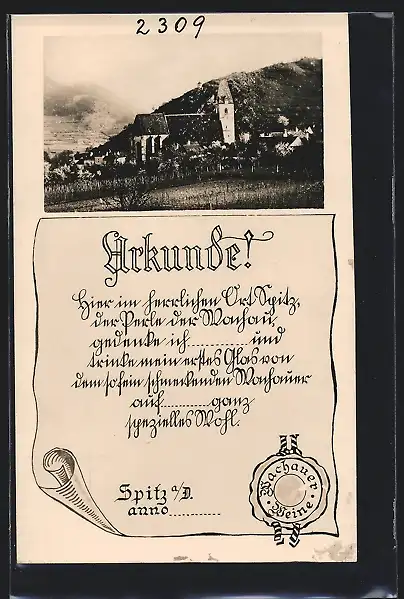 2309
Urkunde!
Hier im herrlichen Ort Spitz,
der Perle der Wachau,
gedenke ich.............und
trinke mein erstes Glas von
dem so fein schmeckenden Wachauer
auf............ganz
spezielles Wohl.
Spitz a/D.
anno............
Wachauer
Weine